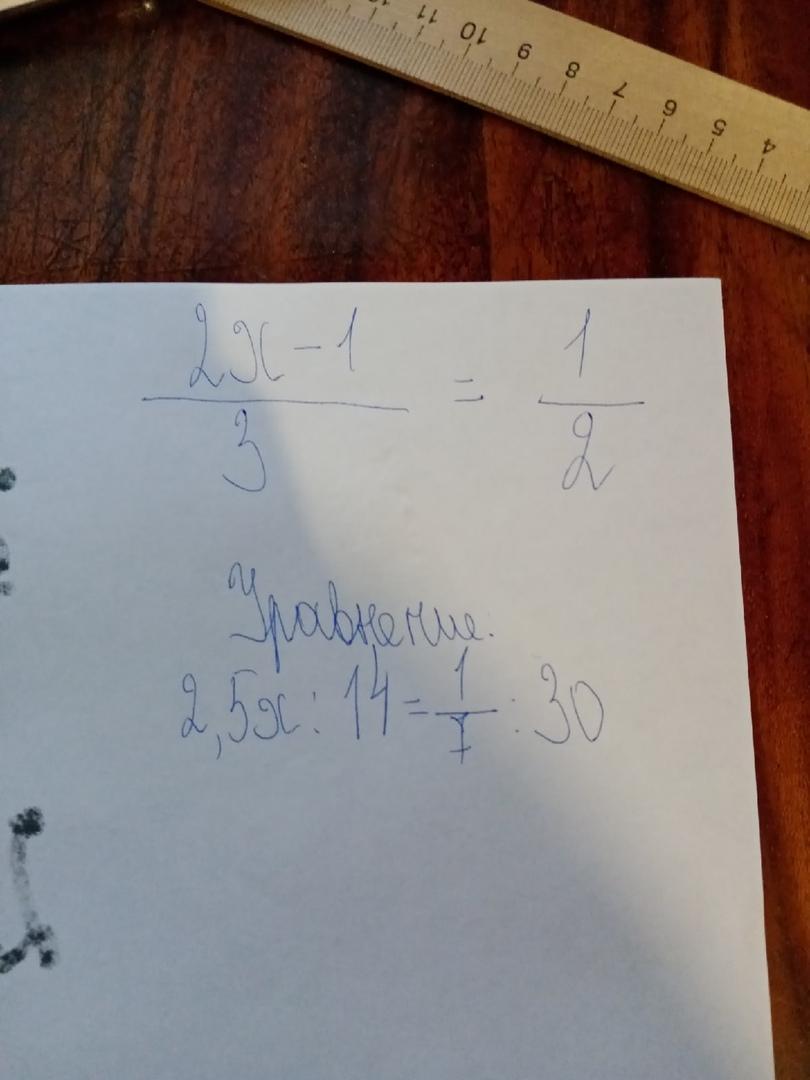 12 11 10 9 8 7 6 5 4
2x-1/3 = 1/2
Уравнение.
2,5x : 14 = 1/7 : 30